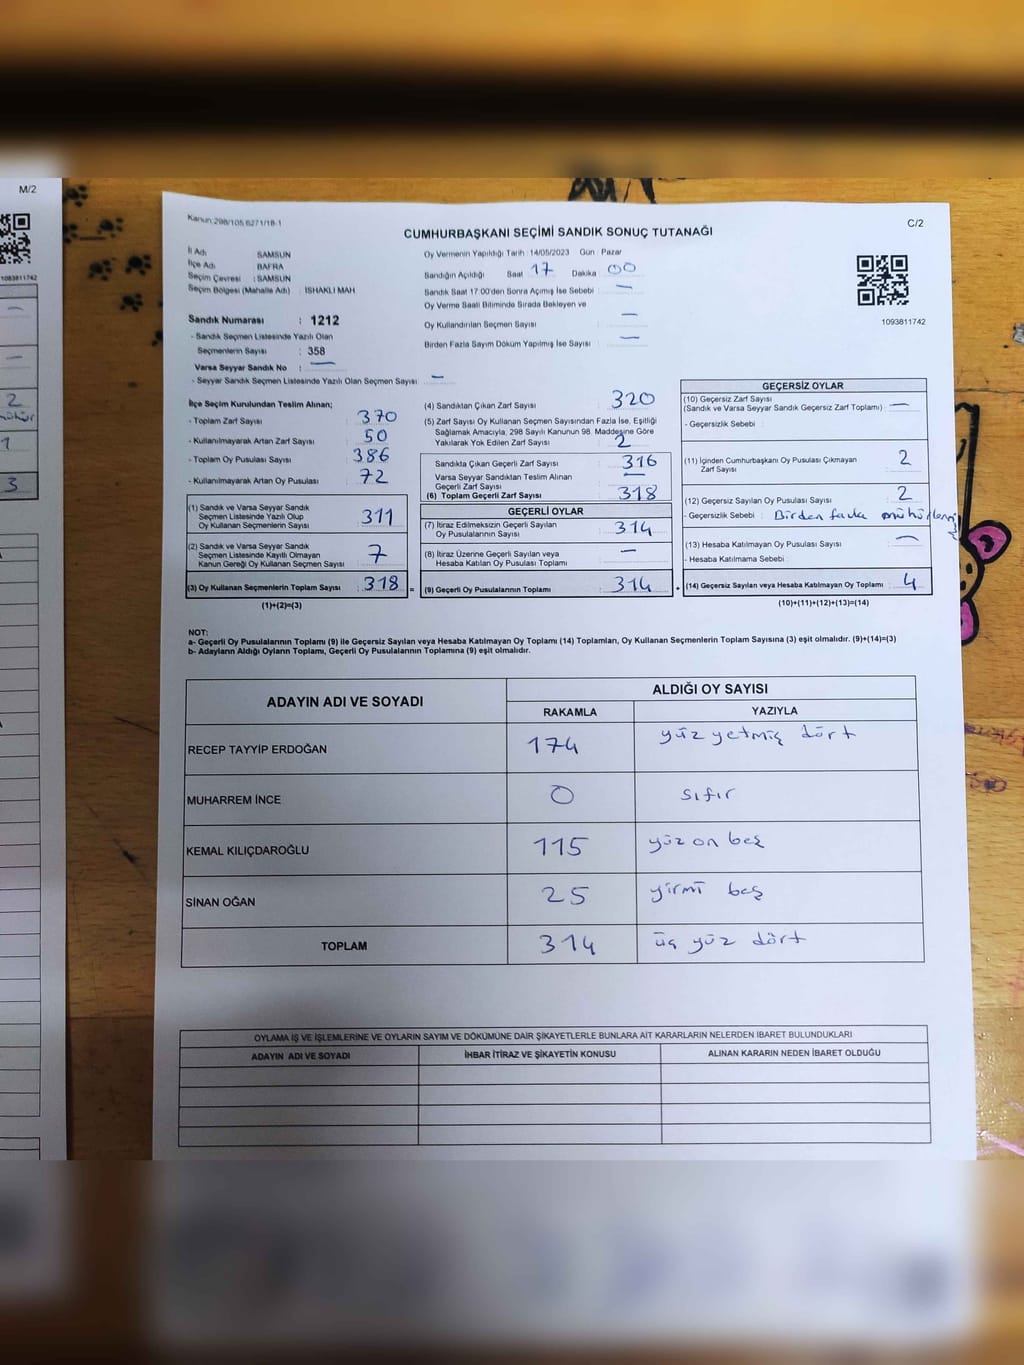 M/2
1093811742
2
1
3
Kanun:298/105,6271/18-1
C/2
CUMHURBAŞKANI SEÇİMİ SANDIK SONUÇ TUTANAĞI
İl Adı : SAMSUN
İlçe Adı : BAFRA
Seçim Çevresi : SAMSUN
Seçim Bölgesi (Mahalle Adı) : İSHAKLI MAH
Sandık Numarası : 1212
- Sandık Seçmen Listesinde Yazılı Olan
Seçmenlerin Sayısı : 358
Varsa Seyyar Sandık No : —
- Seyyar Sandık Seçmen Listesinde Yazılı Olan Seçmen Sayısı : —
Oy Vermenin Yapıldığı Tarih : 14/05/2023 Gün : Pazar
Sandığın Açıldığı Saat 17 Dakika 00
Sandık Saat 17:00'den Sonra Açımış İse Sebebi : —
Oy Verme Saati Bitiminde Sırada Bekleyen ve
Oy Kullandırılan Seçmen Sayısı : —
Birden Fazla Sayım Döküm Yapılmış İse Sayısı : —
1093811742
İlçe Seçim Kurulundan Teslim Alınan;
- Toplam Zarf Sayısı : 370
- Kullanılmayarak Artan Zarf Sayısı : 50
- Toplam Oy Pusulası Sayısı : 386
- Kullanılmayarak Artan Oy Pusulası : 72
(1) Sandık ve Varsa Seyyar Sandık
Seçmen Listesinde Yazılı Olup
Oy Kullanan Seçmenlerin Sayısı : 311
(2) Sandık ve Varsa Seyyar Sandık
Seçmen Listesinde Kayıtlı Olmayan
Kanun Gereği Oy Kullanan Seçmen Sayısı : 7
(3) Oy Kullanan Seçmenlerin Toplam Sayısı : 318 =
(1)+(2)=(3)
(4) Sandıktan Çıkan Zarf Sayısı : 320
(5) Zarf Sayısı Oy Kullanan Seçmen Sayısından Fazla İse, Eşitliği
Sağlamak Amacıyla, 298 Sayılı Kanunun 98. Maddesine Göre
Yakılarak Yok Edilen Zarf Sayısı : 2
Sandıkta Çıkan Geçerli Zarf Sayısı : 316
Varsa Seyyar Sandıktan Teslim Alınan
Geçerli Zarf Sayısı : —
(6) Toplam Geçerli Zarf Sayısı : 318
GEÇERLİ OYLAR
(7) İtiraz Edilmeksizin Geçerli Sayılan
Oy Pusulalarının Sayısı : 314
(8) İtiraz Üzerine Geçerli Sayılan veya
Hesaba Katılan Oy Pusulası Toplamı : —
(9) Geçerli Oy Pusulalarının Toplamı : 314 +
GEÇERSİZ OYLAR
(10) Geçersiz Zarf Sayısı
(Sandık ve Varsa Seyyar Sandık Geçersiz Zarf Toplamı) : —
- Geçersizlik Sebebi :
(11) İçinden Cumhurbaşkanı Oy Pusulası Çıkmayan
Zarf Sayısı : 2
(12) Geçersiz Sayılan Oy Pusulası Sayısı : 2
- Geçersizlik Sebebi : Birden fazla
(13) Hesaba Katılmayan Oy Pusulası Sayısı : —
- Hesaba Katılmama Sebebi :
(14) Geçersiz Sayılan veya Hesaba Katılmayan Oy Toplamı : 4
(10)+(11)+(12)+(13)=(14)
NOT:
a- Geçerli Oy Pusulalarının Toplamı (9) ile Geçersiz Sayılan veya Hesaba Katılmayan Oy Toplamı (14) Toplamları, Oy Kullanan Seçmenlerin Toplam Sayısına (3) eşit olmalıdır. (9)+(14)=(3)
b- Adayların Aldığı Oyların Toplamı, Geçerli Oy Pusulalarının Toplamına (9) eşit olmalıdır.
ADAYIN ADI VE SOYADI ALDIĞI OY SAYISI
RAKAMLA YAZIYLA
RECEP TAYYİP ERDOĞAN 174 yüz yetmiş dört
MUHARREM İNCE 0 sıfır
KEMAL KILIÇDAROĞLU 115 yüz on beş
SİNAN OĞAN 25 yirmi beş
TOPLAM 314 üç yüz dört
OYLAMA İŞ VE İŞLEMLERİNE VE OYLARIN SAYIM VE DÖKÜMÜNE DAİR ŞİKAYETLERLE BUNLARA AİT KARARLARIN NELERDEN İBARET BULUNDUKLARI
ADAYIN ADI VE SOYADI İHBAR İTİRAZ VE ŞİKAYETİN KONUSU ALINAN KARARIN NEDEN İBARET OLDUĞU